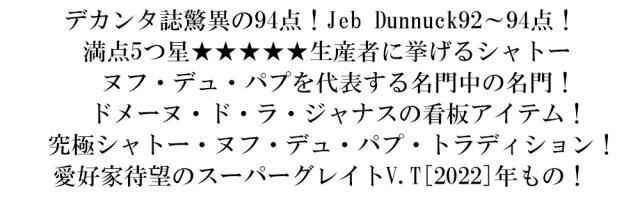 デカンタ誌驚異の94点！Jeb Dunnuck92～94点！
満点5つ星★★★★★生産者に挙げるシャトー
ヌフ・デュ・パプを代表する名門中の名門！
ドメーヌ・ド・ラ・ジャナスの看板アイテム！
究極シャトー・ヌフ・デュ・パプ・トラディション！
愛好家待望のスーパーグレイトV.T[2022]年もの！